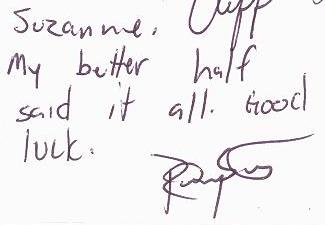 Suzanne. Cliff
My better half
said it all. Good
luck.